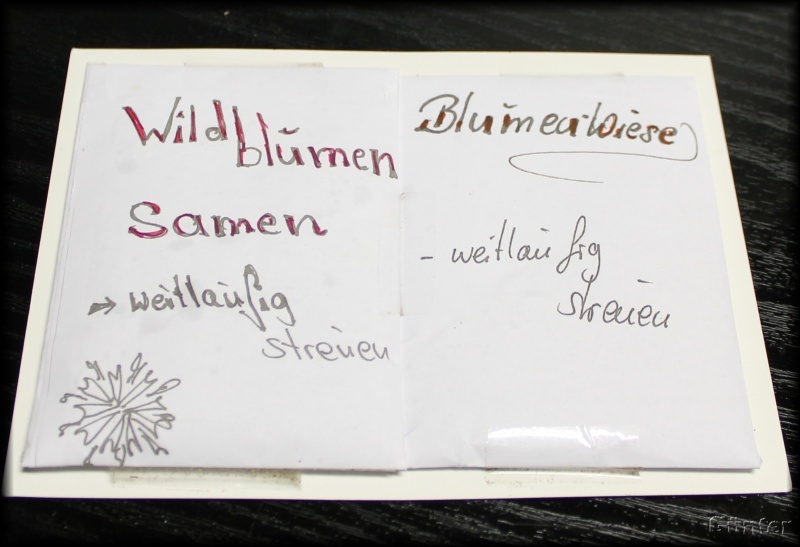 Wild
blumen
Samen
→ weitläufig
streuen
Blumenwiese
- weitläufig
streuen
Günter